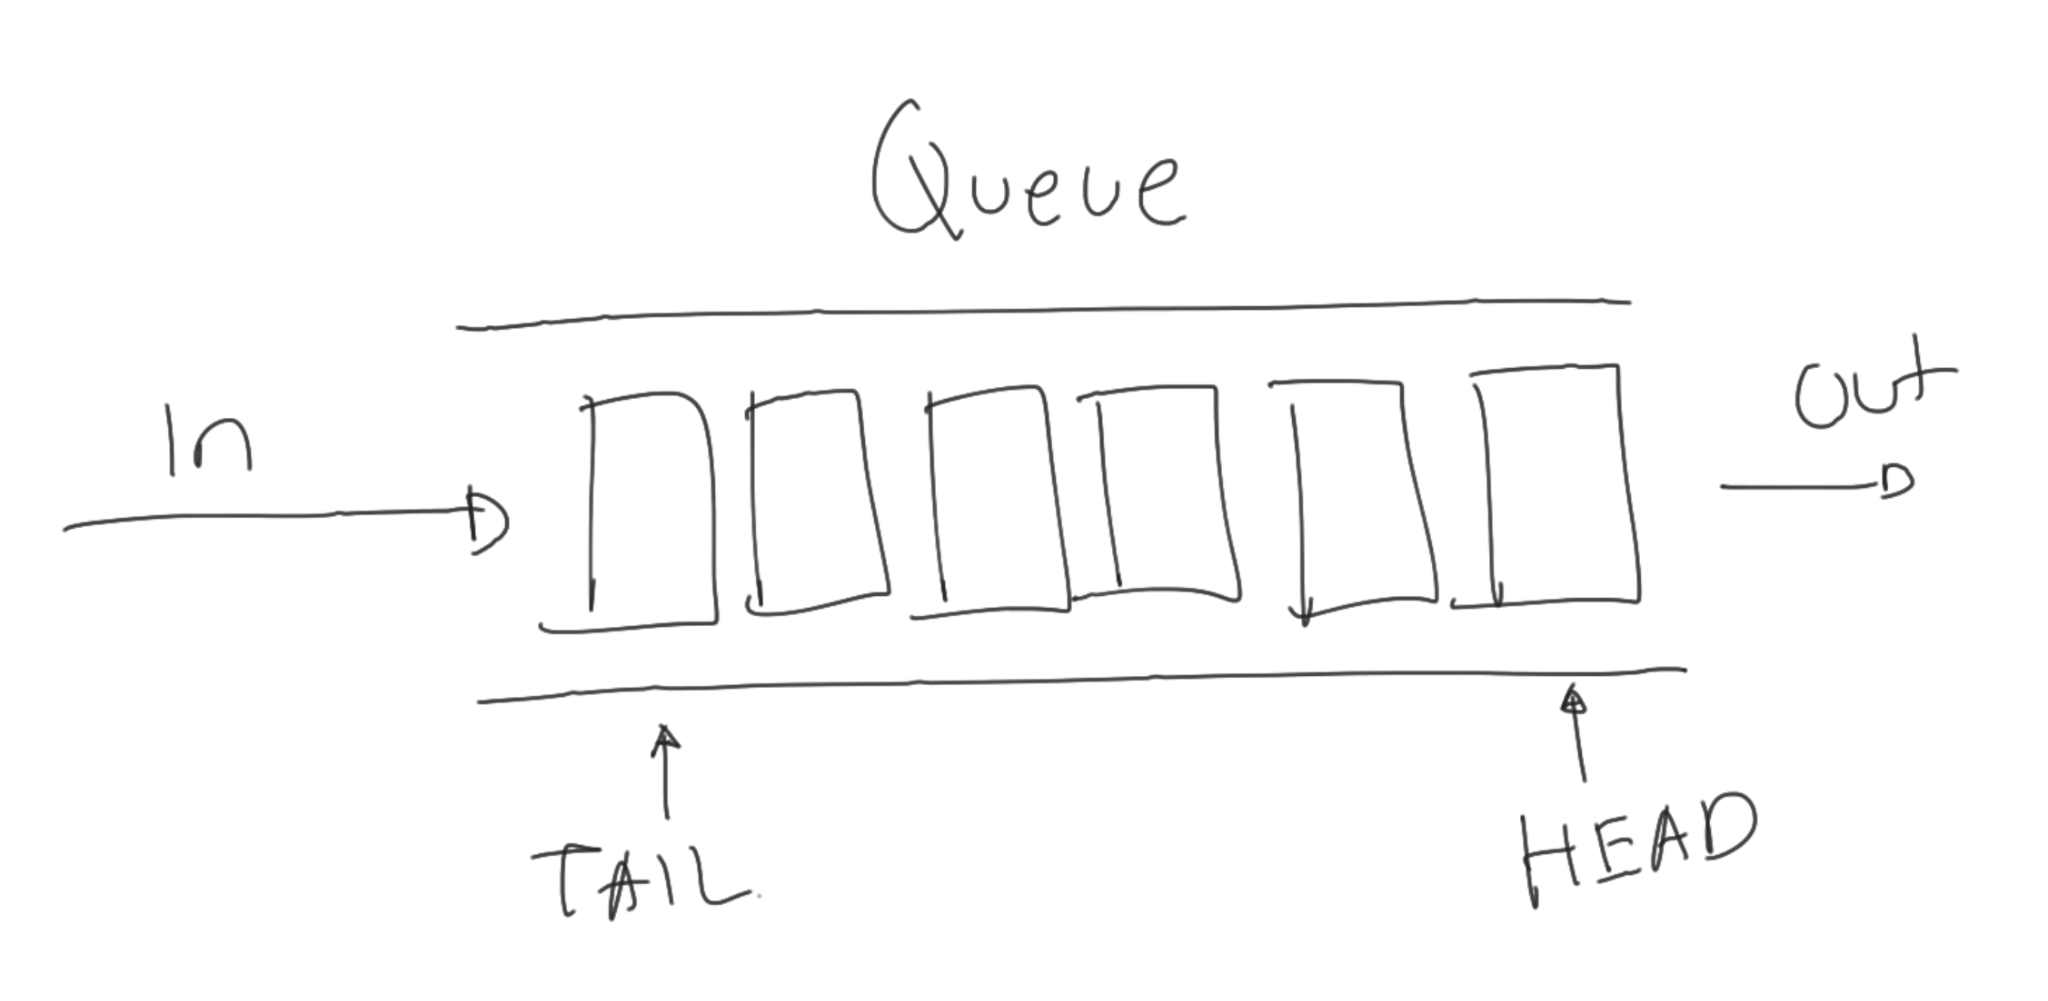 Queue
In
Out
TAIL
HEAD